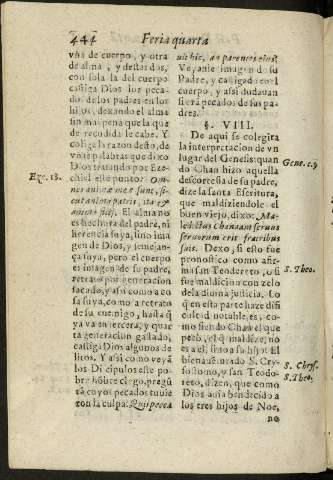 444 Feria quarta
vna de cuerpo, y otra
de alma, y destas dos,
con sola la del cuerpo
castiga Dios los pecados
de los padres en los
hijos, dexando el alma
sin mas pena que la que
de recodida le cabe. Y
colige la razon desto, de
vnas palabras que dixo
Dios tratando por Ezechiel
este punto: Omnes
animæ meæ sunt, sicut
anima patris, ita &
anima filij. El alma no
es hechura del padre, ni
herencia suya, sino imagen
de Dios, y semejança
suya, pero el cuerpo
es imagen de su padre,
retrato por generacion
sacado, y assi como a cosa
suya, como a retrato
de su enemigo, hasta q̃
ya va en tercera, y quarta
generacion gastado,
castiga Dios algunos delitos.
Y assi como veyã
los Dicipulos este pobre
hõbre ciego, pregũta
cuyos pecados tuuiesse
con la culpa: Quis peccauit
hic, aut parentes eius?
Ve, ante imagen de su
Padre, y castigado en el
cuerpo, y assi dudauan
si era pecados de sus padres.
§. VIII.
De aqui se colegira
la interpretacion de vn
lugar del Genesis: quando
Chan hizo aquella
descortesia de su padre,
dize la santa Escritura,
que maldiziendole el
buen viejo, dixo: Maledictus
Chanaam seruus
seruorum erit fratribus
suis. Dexo, si esto fue
pronostico como afirma
san Teodoreto, o si
fue maldicion con zelo
de la diuina justicia. Lo
q̃ en esta parte haze dificultad
notable, es, como
siendo Chan el que
pecò, el q̃ maldize, no
es a el, sino a su hijo? El
bienauẽturado S. Crysostomo,
y san Teodoreto,
dizen, que como
Dios auia bendecido a
los tres hijos de Noe,
no
Eze. 18.
Gene. c. 9
S. Theo.
S. Chrys.
S. Theo.